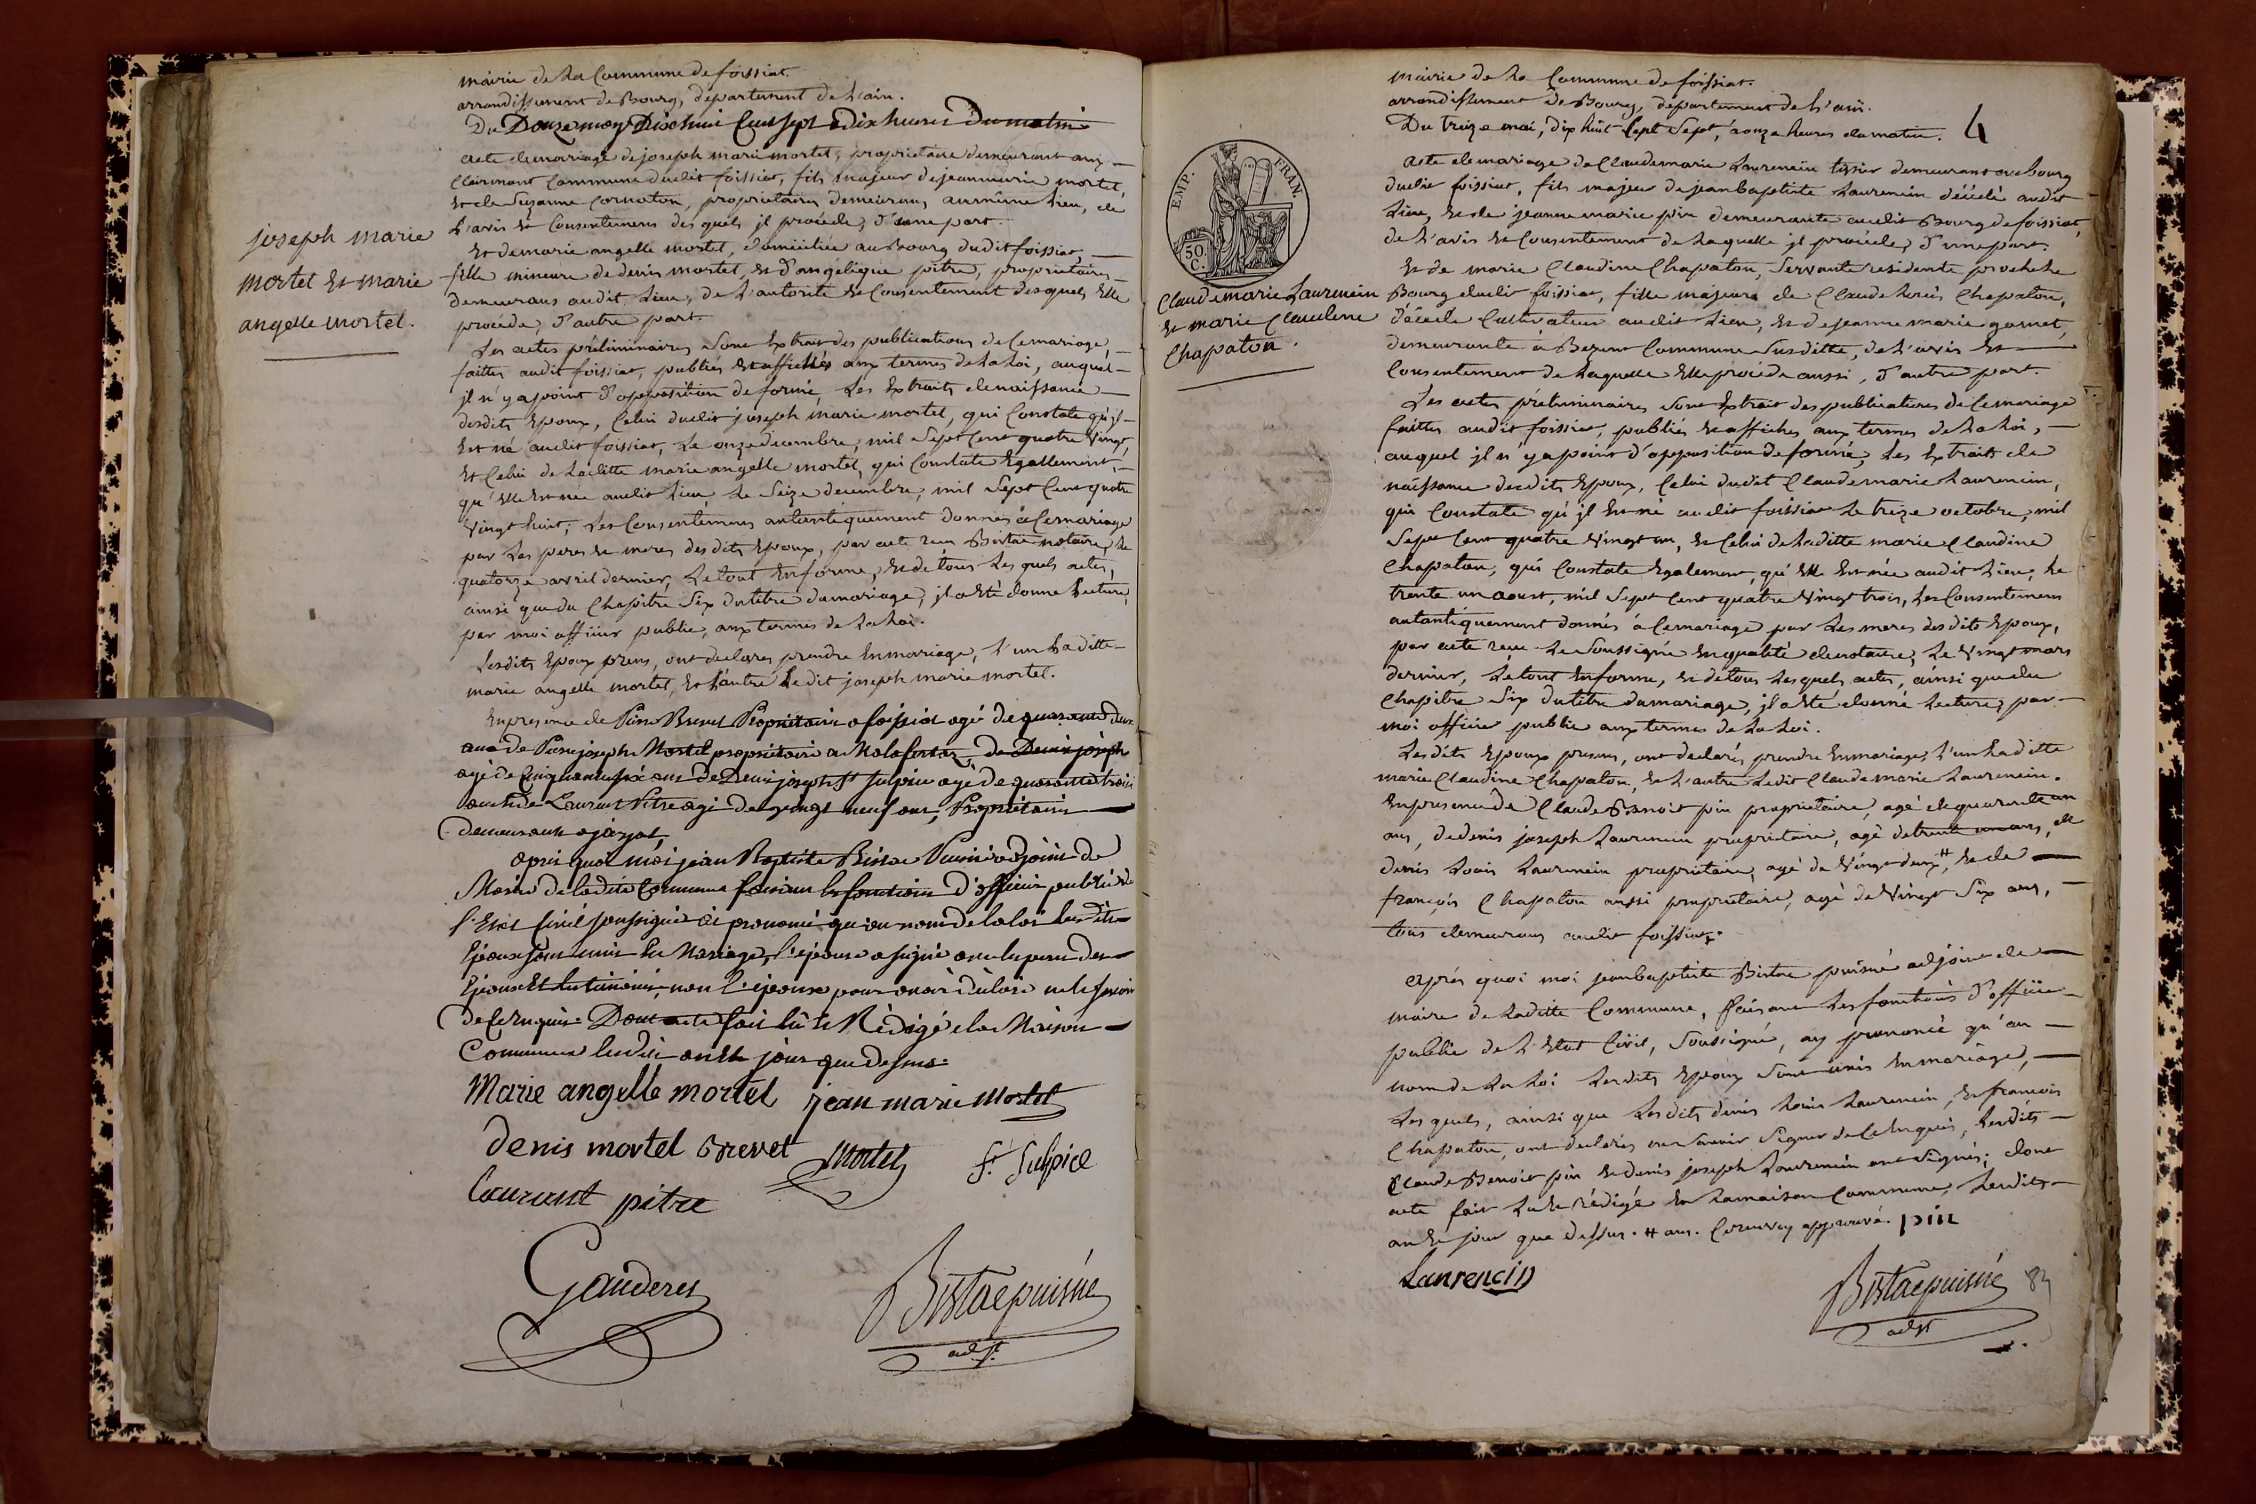 mairie de La Commune de foissiat.
arrondissement de Bourg, département de L'ain.
Du Douze may Dix huit Cent Sept a dix heures du matin
acte de mariage de joseph marie mortel, proprietaire demeurant aux
Clairmont Commune dudit foissiat, fils majeur de jeanmarie mortel,
et de Suzanne Cornaton, proprietaires demeurans au même Lieu, de
L'avis et Consentement des quels il procède, d'une part.
Et de marie angelle mortel, domiciliée au Bourg dudit foissiat,
fille mineure de denis mortel, et d'angelique pitre, proprietaires
demeurans audit Lieu, de L'autorité et Consentement desquels Elle
procéde, d'autre part.
Les actes préliminaires Sont Extrait des publications de Ce mariage,
faittes audit foissiat, publiés et affichés aux termes de La Loi, auquel
il n'y a point d'opposition de formée, Les Extraits de naissance
desdits Epoux, Celui dudit joseph marie mortel, qui Constate qu'il
Est né audit foissiat, Le onze decembre, mil Sept Cent quatre Vingt,
et Celui de Laditte marie angelle mortel, qui Constate Egallement,
qu'elle Est née audit Lieu, Le Seize decembre, mil Sept Cent quatre
Vingt huit; Les Consentemens autantiquement donnés à Ce mariage
par Les peres et meres des dits Epoux, par acte reçu Bistac notaire, Le
quatorze avril dernier, Le tout En forme, et de tous Les quels actes,
ainsi que du Chapitre Six du titre du mariage, il a été donné Lecture,
par moi officier public, aux termes de La Loi.
Lesdits Epoux presens, ont declarés prendre En mariage, L'un Laditte
marie angelle mortel, et L'autre Le dit joseph marie mortel.
En presence de Brevet Propriétaire a foissiat agé de quarante deux
ans de Pierre joseph Mortel proprietaire a de Denis joseph
agé de Cinquante six ans de Denis joseph St Sulpice agé de quarante trois
ans et de Laurent Pitre agé de vingt neuf ans, Propriétaires
demeurants a
apres quoi moi jean Baptiste Bistac Puisné adjoint de
Maire de ladite Commune faisant les fonctions d'officier public de
l'Etat Civil soussigné ai prononcé qu'au nom de la loi lesdits
Epoux sont unis En Mariage, l'epouse a signé avec les peres des
Epoux Et les témoins, non l'epoux pour avoir déclaré ne le savoir
de Ce Enquis. Dont acte fait lû et Rédigé En la Maison
Commune lesdits an et jour que dessus.
Marie angelle mortel jean marie Mortel
denis mortel Brevet Mortel St Sulpice
Laurant pitre
Gauderet Bistac puisné
adjt
joseph marie
mortel et marie
angelle mortel.
mairie de La Commune de foissiat.
arrondissement de Bourg, département de L'ain.
Du treize mai, dix huit Cent Sept, à onze heures du matin. 4
EMP. FRAN.
50 C.
Claude marie Laurencin
et marie Claudine
Chapaton.
Acte de mariage de Claude marie Laurencin tissier demeurant au bourg
dudit foissiat, fils majeur de jean baptiste Laurencin décédé audit
Lieu, et de jeanne marie pin demeurante audit Bourg de foissiat,
de L'avis et Consentement de Laquelle il procède, d'une part.
Et de marie Claudine Chapaton, Servante residente proche Le
Bourg dudit foissiat, fille majeure de Claude Louis Chapaton,
décédé Cultivateur audit Lieu, et de jeanne marie gamet,
demeurante à Commune Susditte, de L'avis et
Consentement de Laquelle Elle procède aussi, d'autre part.
Les actes préliminaires Sont Extrait des publications de Ce mariage
faittes audit foissiat, publiés et affichés aux termes de La Loi,
auquel il n'y a point d'opposition de formée, Les Extraits de
naissance desdits Epoux, Celui dudit Claude marie Laurencin,
qui Constate qu'il Est né audit foissiat Le treize octobre, mil
Sept Cent quatre Vingt un, et Celui de Laditte marie Claudine
Chapaton, qui Constate Egalement, qu'elle Est née audit Lieu, Le
trente un aoust, mil Sept Cent quatre Vingt trois, Les Consentemens
autantiquement donnés à Ce mariage par Les meres des dits Epoux,
par acte reçu Le Soussigné En qualité de notaire, Le Vingt mars
dernier, Le tout En forme, et de tous Lesquels actes, ainsi que du
Chapitre Six du titre du mariage, il a été donné Lecture, par
moi officier public aux termes de La Loi.
Lesdits Epoux presens, ont declarés prendre En mariage, L'un Laditte
marie Claudine Chapaton, et L'autre Ledit Claude marie Laurencin.
En presence de Claude Benoit pin proprietaire, agé de quarante un
ans, de denis joseph Laurencin proprietaire, agé de trente un ans, de
denis Louis Laurencin proprietaire, agé de Vingt deux #, et de
françois Chapaton aussi proprietaire, agé de Vingt Six ans,
tous demeurans audit foissiat.
Après quoi moi jean baptiste Bistac puisné adjoint de
maire de Laditte Commune, faisant Les fonctions d'officier
public de L'Etat Civil, Soussigné, ay prononcé qu'au
nom de La Loi Lesdits Epoux Sont unis En mariage,
Les quels, ainsi que Lesdits denis Louis Laurencin, et françois
Chapaton, ont declarés ne Savoir Signer de Ce Enquis, Lesdits
Claude Benoit pin et denis joseph Laurencin ont Signés; dont
acte fait Lu et rédigé En La maison Commune, Lesdits
an et jour que dessus. # ans. Ce renvoy approuvé. pin
Laurencin Bistac puisné
adjt